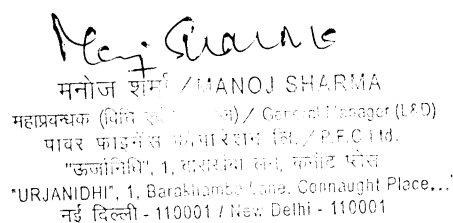 Manoj Sharma
मनोज शर्मा / MANOJ SHARMA
महाप्रबन्धक (विधि एवं) / General Manager (L&D)
पावर फाइनेंस कॉर्पोरेशन लि. / P.F.C Ltd.
"ऊर्जानिधि", 1, बाराखंबा लेन, कनॉट प्लेस
"URJANIDHI", 1, Barakhamba Lane, Connaught Place,...
नई दिल्ली - 110001 / New Delhi - 110001